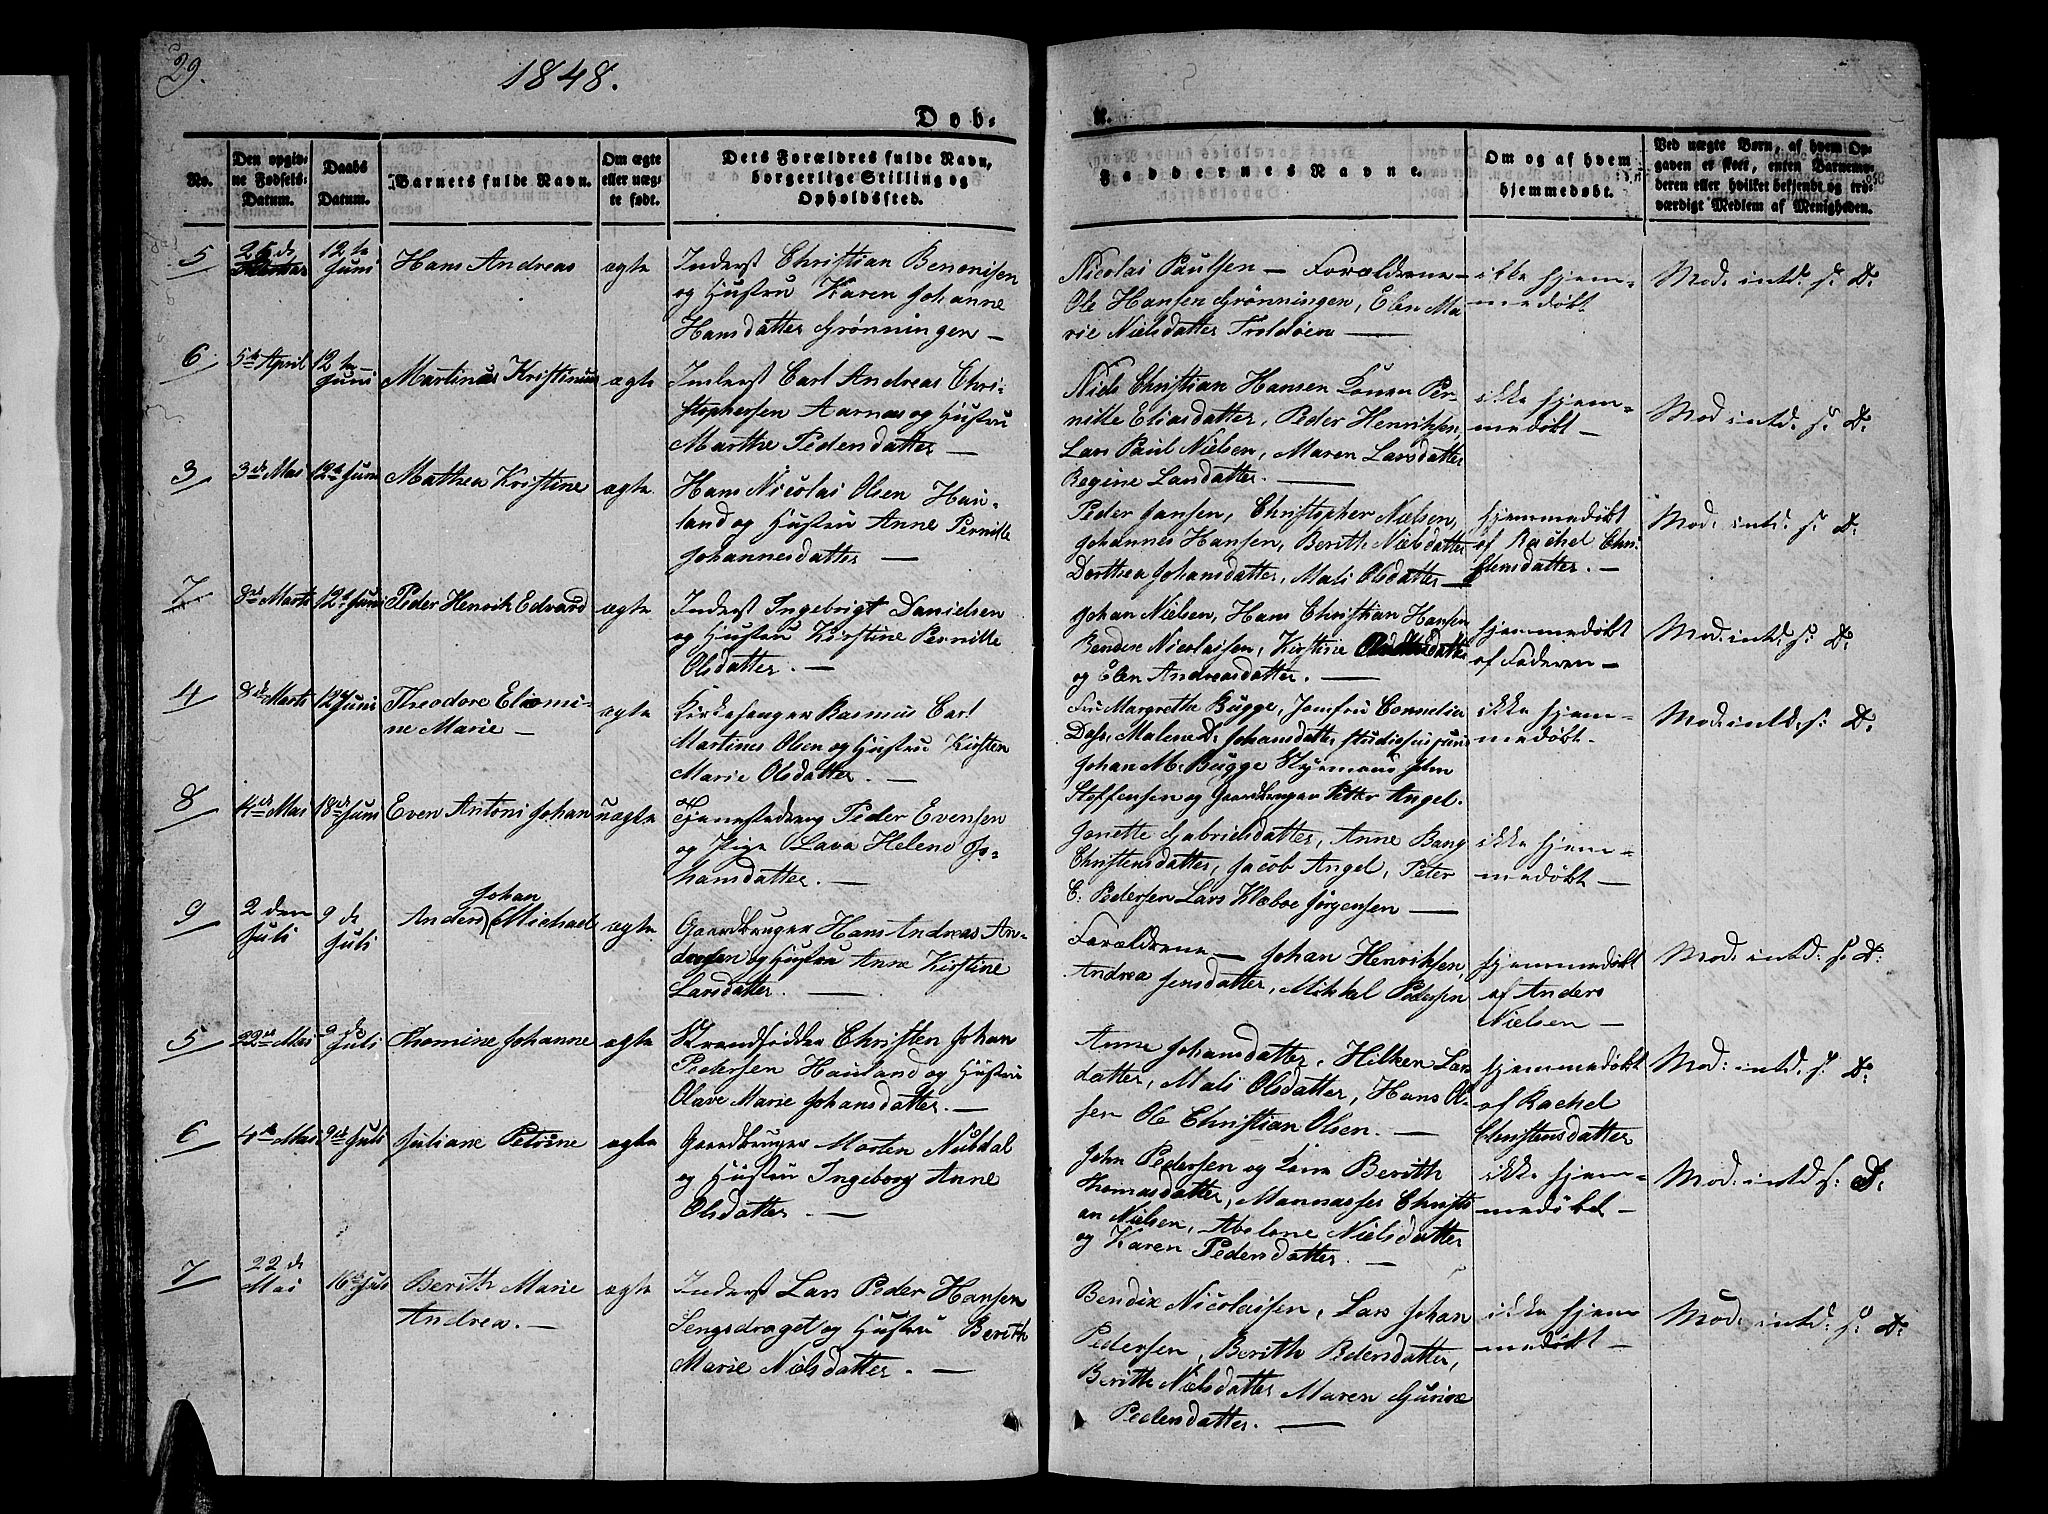 29.
1848.
Døb-
te.
No.
Den opgiv-
ne Fødsels-
Datum.
Daabs
Datum.
Barnets fulde Navn.
Om ægte
eller uæg-
te født.
Dets Forældres fulde Navn,
borgerlige Stilling og
Opholdssted.
Faddernes Navne.
Om og af hvem
hjemmedøbt.
Ved uægte Børn, af hvem Op-
gaven er skeet, enten Barnemo-
deren eller hvilket bekjendt og tro-
værdigt Medlem af Menigheden.
5
12te
Juni
Hans Andreas
ægte
Inderst Christian Benonisen
og Hustru Karen Johanne
Hansdatter Grønningen —
Nicolai Paulsen — Forældrene —
Ole Hansen Grønningen, Elen Ma
rie Nielsdatter Troldøen —
ikke hjem-
medøbt
Mod: intd: f: D:
6
5te April
12te
Juni
Martinus Kristinus
ægte
Inderst Carl Andreas Chri-
stophersen Aarnæs og Hustru
Marthe Pedersdatter —
Niels Christian Hansen Konen Per-
nille Eliasdatter, Peder Henriksen,
Lars Paul Nielsen, Maren Larsdatter
Regine Larsdatter. —
ikke hjem-
medøbt —
Mod intd: f: D:
3
3de Mai
12te Juni
Mathea Kristine
ægte
Hans Nicolai Olsen Hau-
land og Hustru Anne Pernille
Johannesdatter —
Peder Jansen, Christopher Nielsen,
Johannes Hansen, Berith Nielsdatter
Dorthea Johansdatter, Mali Olsdatter —
hjemmedøbt
af Rachel Chri-
stensdatter. —
Mod: intd: f: D:
7
8de Marts
12te Juni
Peder Henrik Edvard
ægte
Inderst Ingebrigt Danielsen
og Hustru Kirstine Pernille
Olsdatter. —
Johan Nielsen, Hans Christian Hansen
Bendix Nicolaisen, Kirstine
og Elen Andreasdatter. —
hjemmedøbt
af Faderen —
Mod: intd: f: D:
4
8de Marts
12te Juni
Theodore Eliomi-
ne Marie —
ægte
Kirkesanger Rasmus Carl
Martines Olsen og Hustru Kirsten
Marie Olsdatter. —
Fru Margrethe Bugge, Jomfru Cornelia
Dass, Malene D: Johansdatter Studiosus
Johan M: Bugge Styrmand John
Steffensen og Gaardbruger Petter Angel.
ikke hjem-
medøbt —
Mod: intd: f: D:
8
4de Mai
18de Juni
Even Antoni Johan
uægte
Tjenestedreng Peder Evensen
og Pige Lava Helene Jo-
hansdatter. —
Jonette Gabrielsdatter, Anne Bang
Christensdatter, Jacob Angel, Peter
C: Pedersen Lars Klæboe Jørgensen —
ikke hjem-
medøbt —
9
2den
Juli
9de
Juli
Johan
Anders (Michael
ægte
Gaardbruger Hans Andreas An-
dersen og Hustru Anne Kirstine
Larsdatter. —
Forældrene — Johan Henriksen,
Andrea Jensdatter, Mikkel Pedersen
hjemmedøbt
af Anders
Nielsen —
Mod: intd: f: D:
5
22de Mai
9de
Juli
Thomine Johanne
ægte
Strandsidder Christen Johan
Pedersen Hauland og Hustru
Olave Marie Johansdatter. —
Anne Johansdatter, Hilken Lars
datter, Mali Olsdatter, Hans Ol-
sen Ole Christian Olsen. —
hjemmedøbt
af Rachel
Christensdatter
Mod: intd: f: D:
6
4de Mai
9de Juli
Juliane Petrine
ægte
Gaardbruger Morten Nubdal
og Hustru Ingeborg Anne
Olsdatter —
John Pedersen og Kone Berith
Thomasdatter, Mannasses Christi
an Nielsen, Abelone Nielsdatter
og Karen Pedersdatter. —
ikke hjem-
medøbt —
Mod: intd f: D:
7
22de
Mai
16de Juli
Berith Marie
Andrea. —
ægte
Inderst Lars Peder Hansen
Sengsdraget og Hustru Berith
Marie Nielsdatter. —
Bendix Nicolaisen, Lars Johan
Pedersen, Berith Pedersdatter,
Berith Nielsdatter Maren Gurine
Pedersdatter. —
ikke hjem
medøbt —
Mod: intd: f: D: